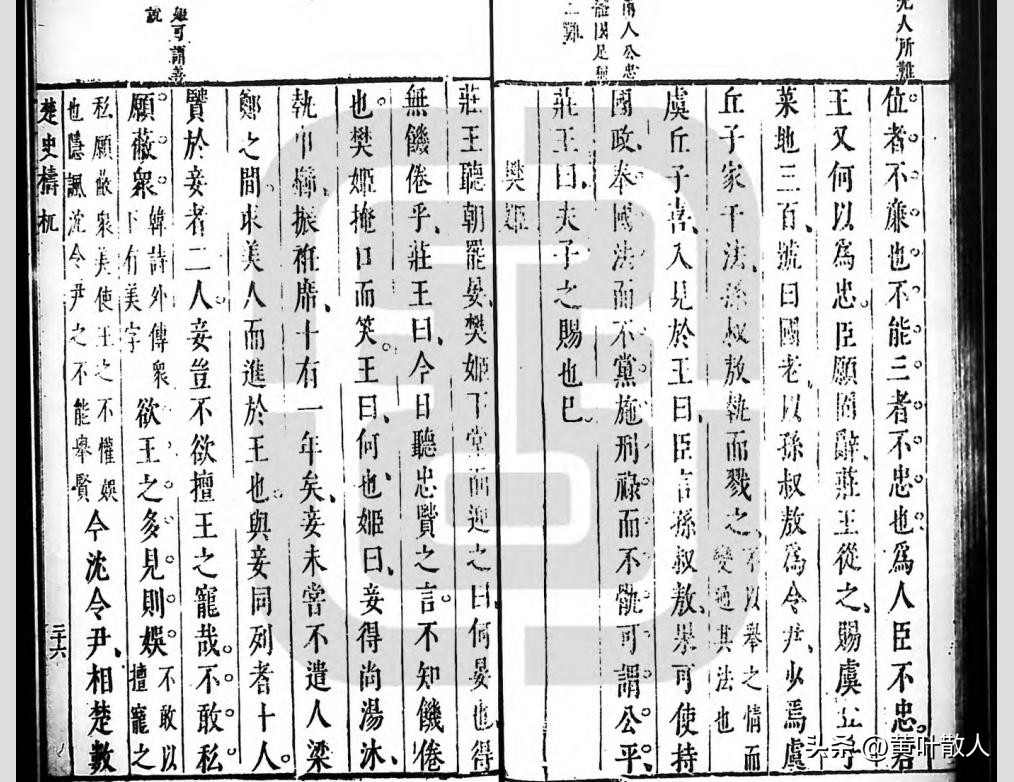 人所難
兩人公忠
體因足
二難
位者不廉也不能三者不忠也為人臣不忠君
王又何以為忠臣願固辭莊王從之賜虞丘子
菜地三百號曰國老以孫叔敖為令尹少焉虞
丘子家干法孫叔敖執而戮之不以舉之情而變通其法也
虞丘子喜入見於王曰臣言孫叔敖果可使持
國政奉國法而不黨施刑祿而不骫可謂公平
莊王曰夫子之賜也巳
樊姬
姬可謂善
說
莊王聽朝罷晏樊姬下堂而迎之曰何晏也得
無饑倦乎莊王曰今日聽忠賢之言不知饑倦
也樊姬掩口而笑王曰何也姬曰妾得尚湯沐
執巾櫛振袵席十有一年矣妾未嘗不遣人梁
鄭之間求美人而進於王也與妾同列者十人
賢於妾者二人妾豈不欲擅王之寵哉不敢私
願蔽衆韓詩外傳衆下有美字欲王之多見則娛不敢以擅寵之
私願蔽衆美使王之不懽娛也隱諷沈令尹之不能舉賢今沈令尹相楚數
楚史檮杌
二十六
头条 @黄叶散人